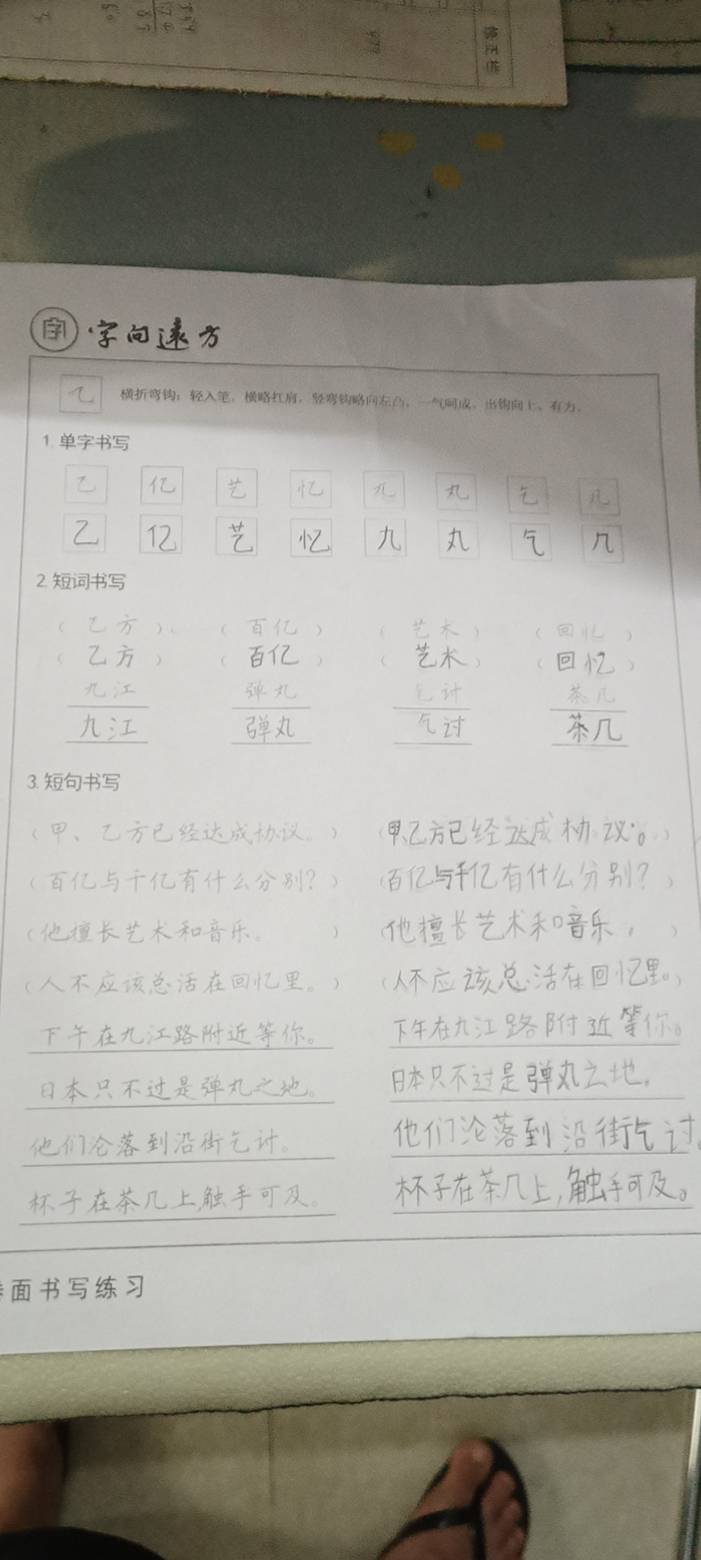 字 字向远方
乙 横折弯钩：轻入笔，横略扛肩，竖弯钩略向左凸，一气呵成，出钩向上，有力。
1. 单字书写
乙 亿 艺 忆 九 丸 乞 几
乙 亿 艺 忆 九 丸 气 几
2. 短词书写
（乙方） （百亿） （艺术） （回忆）
（乙方） （百亿） （艺术） （回忆）
九江 弹丸 乞讨 茶几
九江 弹丸 气讨 茶几
3. 短句书写
（甲、乙方已经达成协议。） （甲、乙方已经达成协议。）
（百亿与千亿有什么分别？） （百亿与千亿有什么分别？）
（他擅长艺术和音乐。） （他擅长艺术和音乐，）
（人不应该总活在回忆里。） （人不应该总活在回忆里。）
下午在九江路附近等你。 下午在九江路附近等你。
日本只不过是弹丸之地。 日本只不过是弹丸之地.
他们沦落到沿街乞讨。 他们沦落到沿街乞讨。
杯子在茶几上,触手可及。 杯子在茶几上,触手可及。
面书写练习